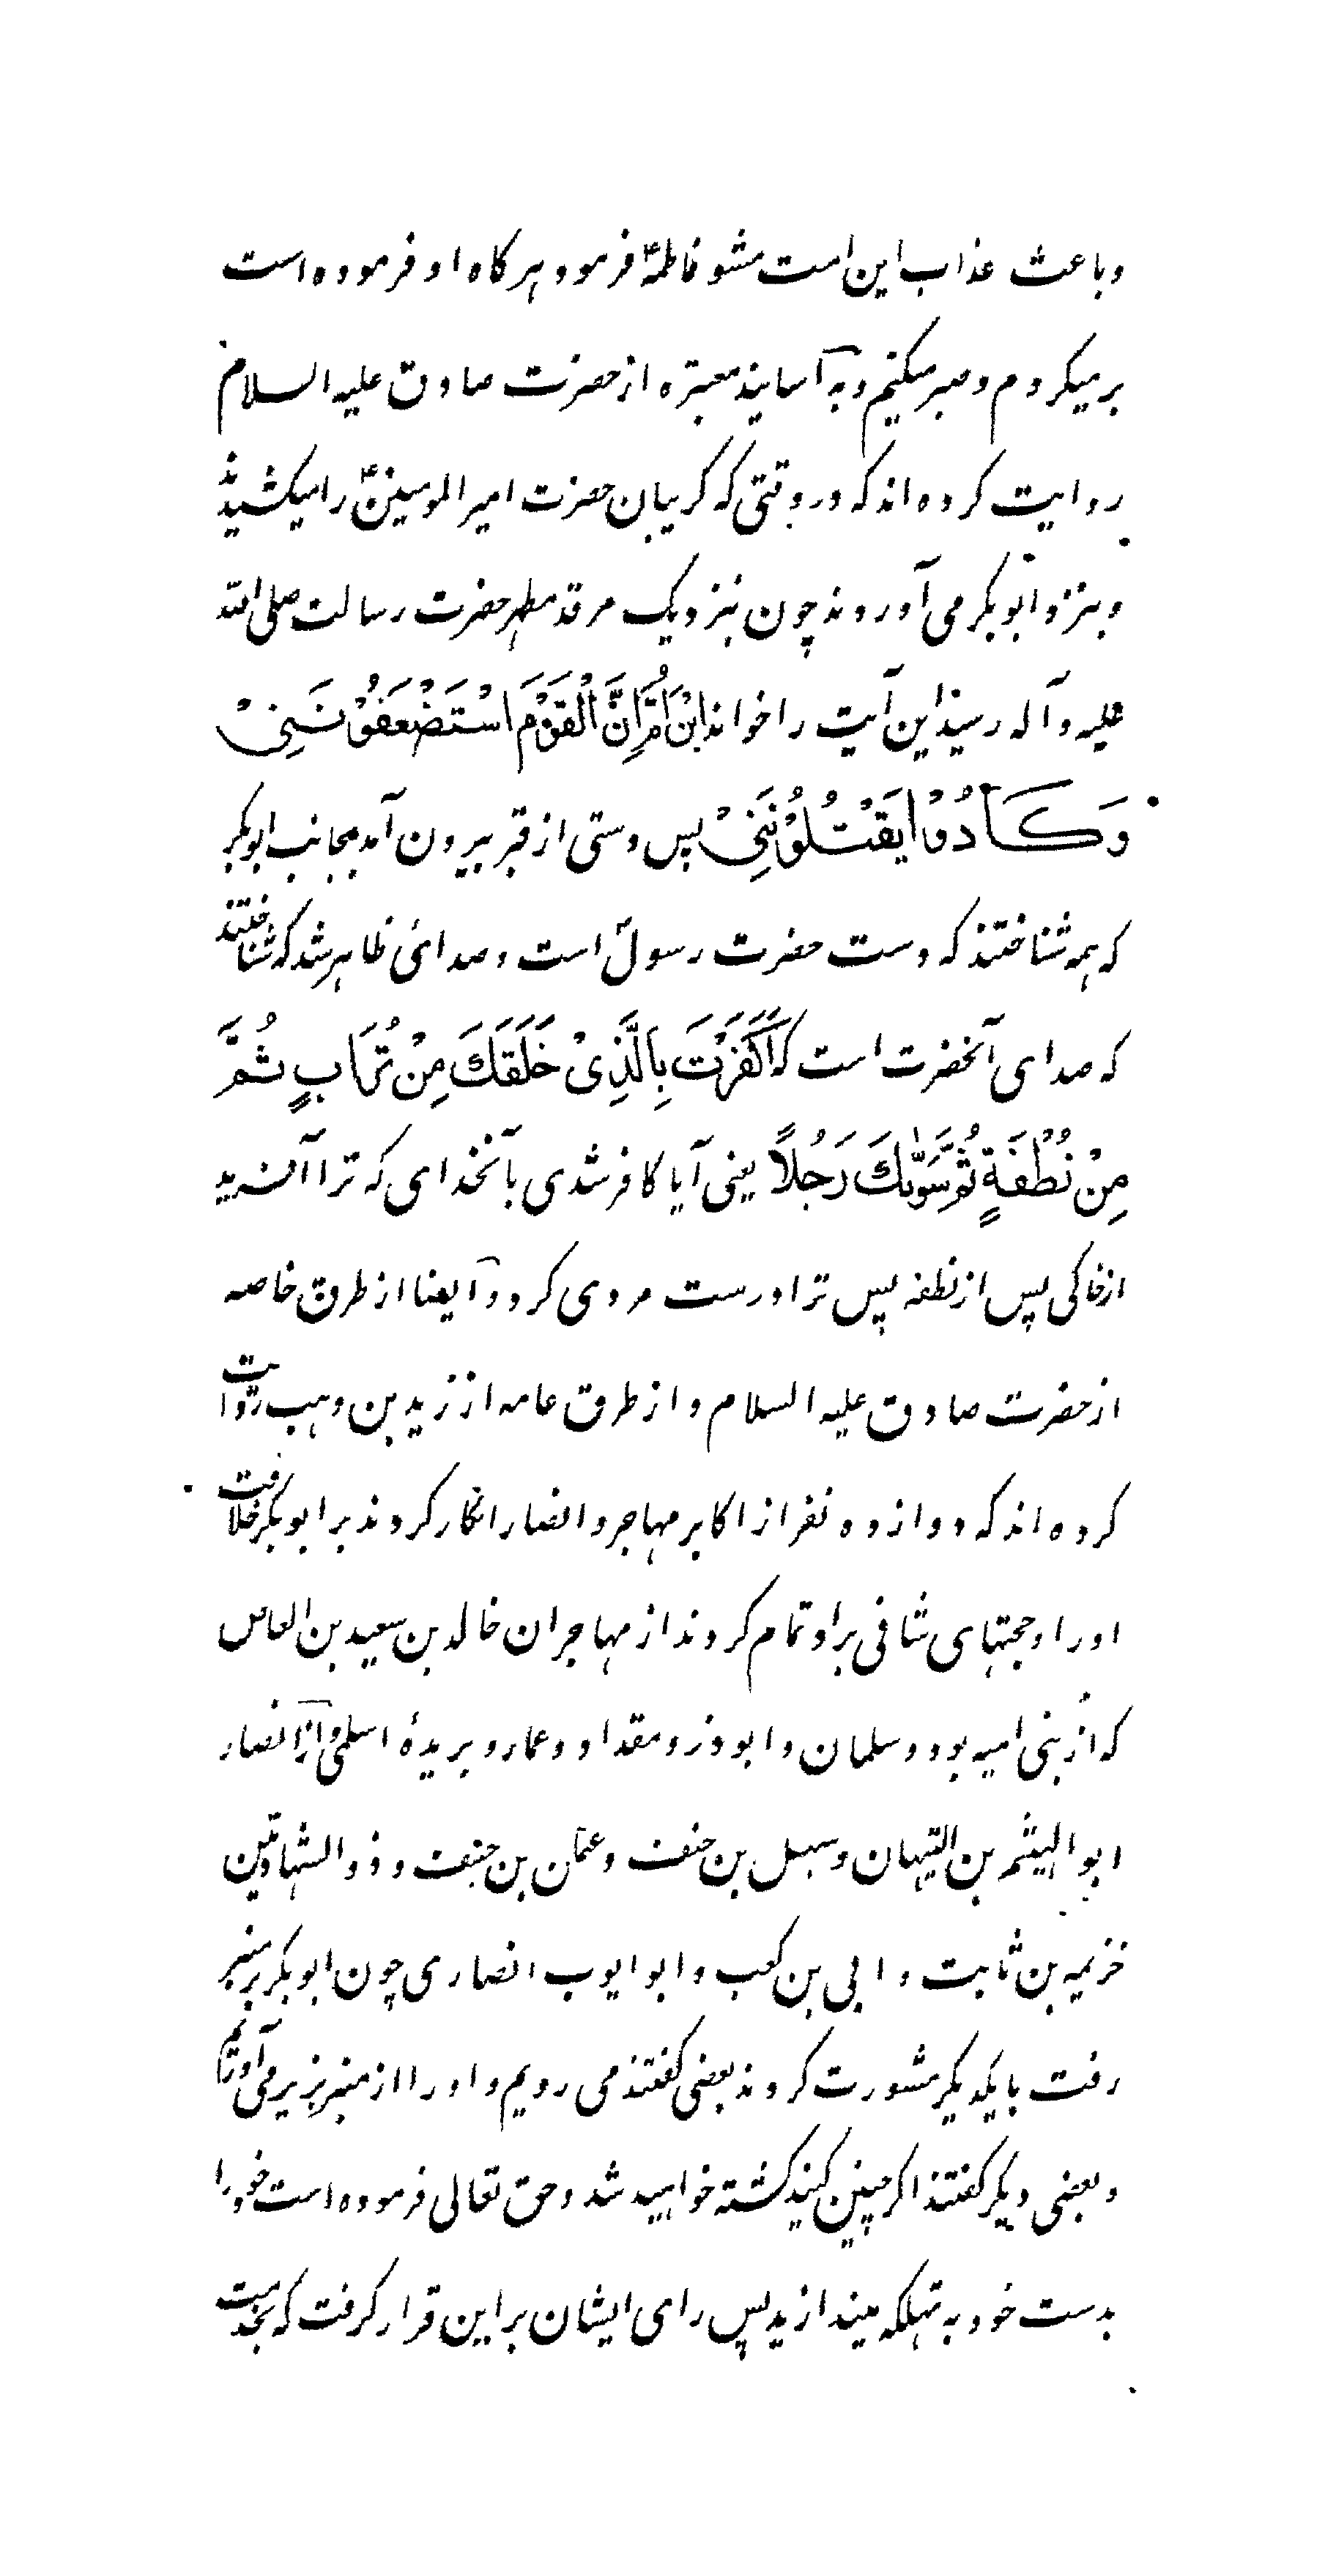 وباعث عذاب این امت مشو فاطمهؑ فرمود هر کاه او فرموده است
بر میکردم و صبر میکنیم و به آسانید معتبره از حضرت صادق علیه السلام
روایت کرده اند که در وقتی که کریبان حضرت امیر المومنینؑ را میکشیدند
وبنزد ابوبکر می آوردند چون بنزدیک مرقد مطهر حضرت رسالت صلی الله
علیه وآله رسید این آیت را خواند اِبْنَ اُمَّ اِنَّ الْقَوْمَ اسْتَضْعَفُوْنَنِیْ
وَكَادُوْا یَقْتُلُوْنَنِیْ پس دستی از قبر بیرون آمد بجانب ابوبکر
که همه شناختند که دست حضرت رسولؐ است و صدائی ظاهر شد که شناختند
که صدای آنحضرت است که اَکَفَرْتَ بِالَّذِیْ خَلَقَكَ مِنْ تُرَابٍ ثُمَّ
مِنْ نُطْفَةٍ ثُمَّ سَوّٰىكَ رَجُلًا یعنی آیا کافر شدی بآنخدای که ترا آفرید
از خاکی پس از نطفه پس ترا درست مردی کرد و آیضا از طرق خاصه
از حضرت صادق علیه السلام و از طرق عامه از زید بن وهب روایت
کرده اند که دوازده نفر از اکابر مهاجر و انصار انکار کردند بر ابوبکر خلافت
اورا و حجتهای شافی بر او تمام کردند از مهاجران خالد بن سعید بن العاص
که از بنی امیه بود و سلمان و ابوذر و مقداد و عمار و بریدهٔ اسلمی و از انصار
ابو الهیثم بن التیهان و سهل بن حنف و عثمان بن حنیف و ذو الشهادتین
خزیمه بن ثابت و ابی بن کعب و ابو ایوب انصاری چون ابوبکر بر منبر
رفت بایکدیکر مشورت کردند بعضی کفتند می رویم و اورا از منبر بزیر می آوریم
و بعضی دیکر کفتند اکر چنین کنید کشته خواهید شد و حق تعالی فرموده است خود را
بدست خود به تهلکه میندازید پس رای ایشان بر این قرار کرفت که بخدمت